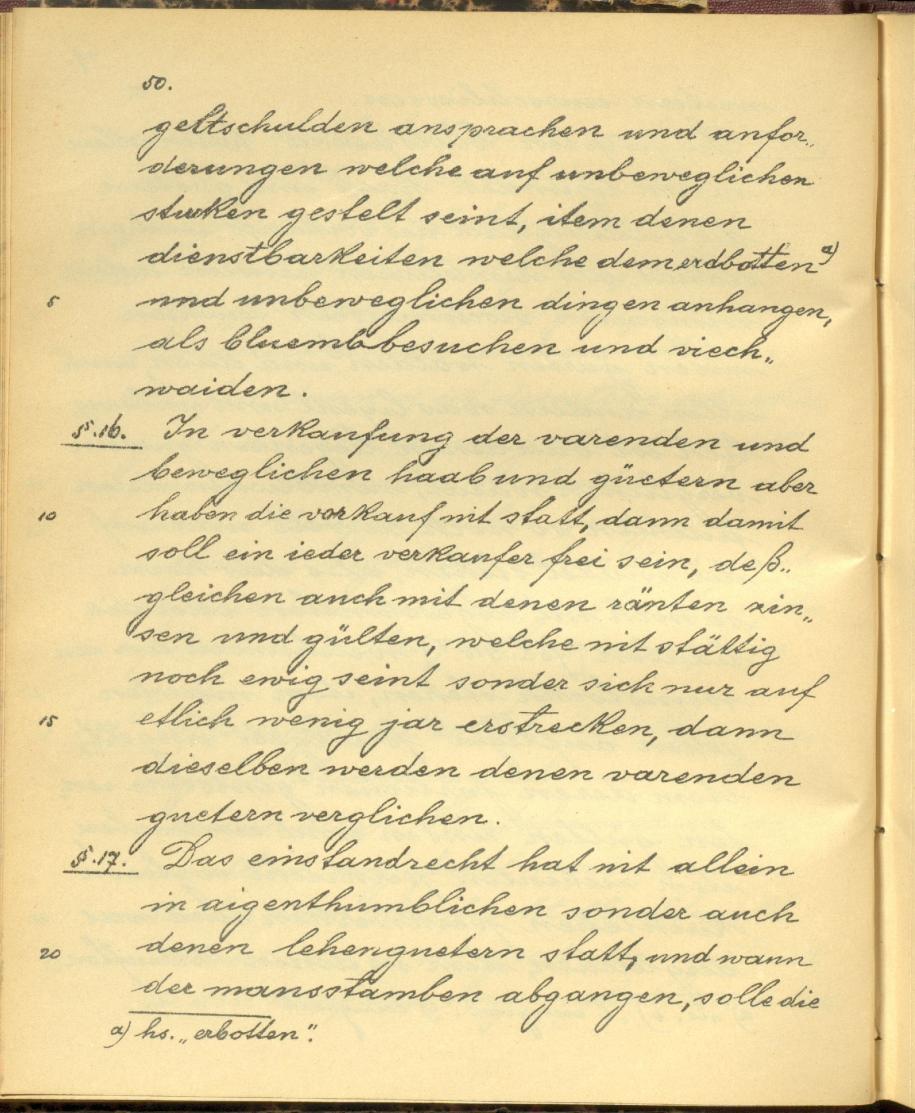 50.
geltschulden ansprachen und anfor„
derungen welche auf unbeweglichen
stuken gestelt seint, item denen
dienstbarkeiten welche dem erdbotten a)
5 und unbeweglichen dingen anhangen,
als bluembbesuchen und viech„
waiden.
§.16. In verkaufung der varenden und
beweglichen haab und güetern aber
10 haben die vorkauf nit statt, dann damit
soll ein ieder verkaufer frei sein, deß„
gleichen auch mit denen ränten zin„
sen und gülten, welche nit stättig
noch ewig seint sonder sich nur auf
15 etlich wenig jar erstrecken, dann
dieselben werden denen varenden
guetern verglichen.
§.17. Das einstandrecht hat nit allein
in aigenthumblichen sonder auch
20 denen lehenguetern statt, und wann
der mansstamben abgangen, solle die
a) hs. „erbotten".